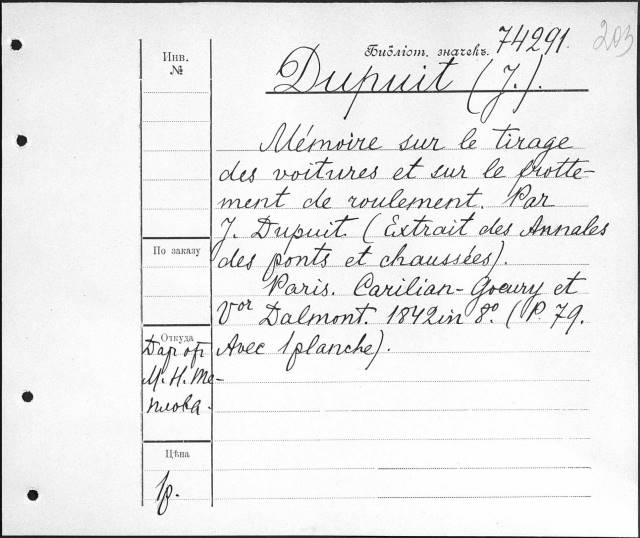 Библіот. значекъ. 74291.
203
Инв.
№
Dupuit (J.).
Mémoire sur le tirage
des voitures et sur le frotte-
ment de roulement. Par
J. Dupuit (Extrait des Annales
des ponts et chaussées).
Paris. Carilian-Goeury et
Vor Dalmont. 1842 in 8º. (P. 79.
Avec 1 planche).
По заказу
Откуда
Дар от
М. Н. Те-
плова.
Цѣна
1р.